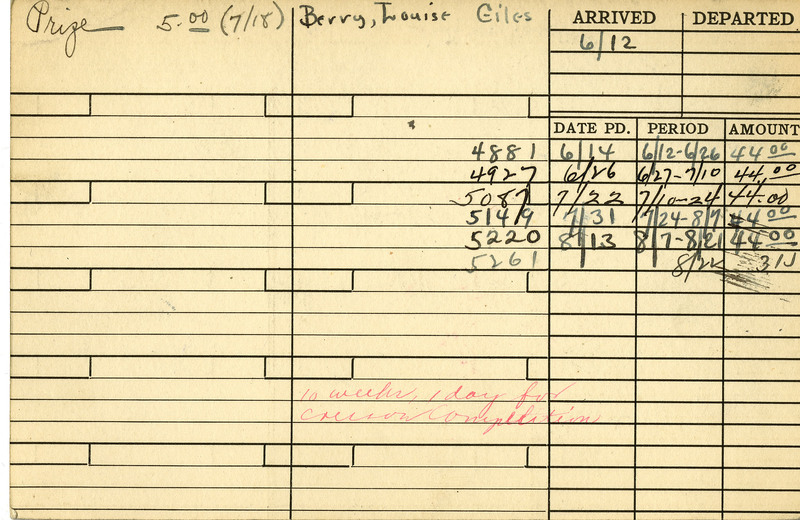 Prize 5.00 (7/18) Berry, Louise Giles ARRIVED DEPARTED
6/12
DATE PD. PERIOD AMOUNT
4881 6/14 6/12-6/26 44.00
4927 6/26 6/27-7/10 44.00
5087 7/22 7/10-24 44.00
5149 7/31 7/24-8/7 44.00
5220 8/13 8/7-8/21 44.00
5261 8/22
10 weeks, 1 day for
Cresson Competition